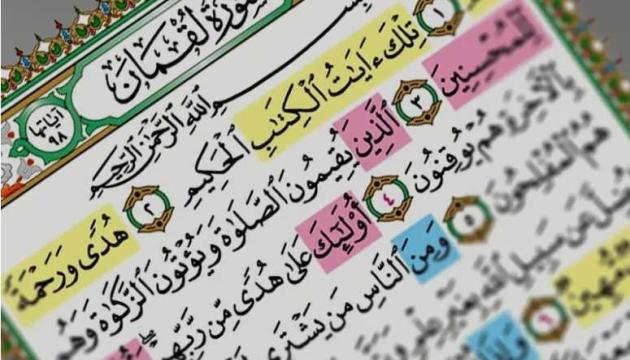 سُورَةُ لُقْمَانَ
ءاياتها ٩٨
بِسْمِ ٱللَّهِ ٱلرَّحْمَٰنِ ٱلرَّحِيمِ
١ تِلْكَ ءَايَٰتُ ٱلْكِتَٰبِ ٱلْحَكِيمِ ٢ هُدًى وَرَحْمَةً
لِّلْمُحْسِنِينَ ٣ ٱلَّذِينَ يُقِيمُونَ ٱلصَّلَوٰةَ وَيُؤْتُونَ ٱلزَّكَوٰةَ وَهُم
بِٱلْءَاخِرَةِ هُمْ يُوقِنُونَ ٤ أُو۟لَٰٓئِكَ عَلَىٰ هُدًى مِّن رَّبِّهِمْ
هُمُ ٱلْمُفْلِحُونَ ٥ وَمِنَ ٱلنَّاسِ مَن يَشْتَرِى
عَن سَبِيلِ ٱللَّهِ بِغَيْرِ
مُّهِينٌ ٦ وَإِذَا